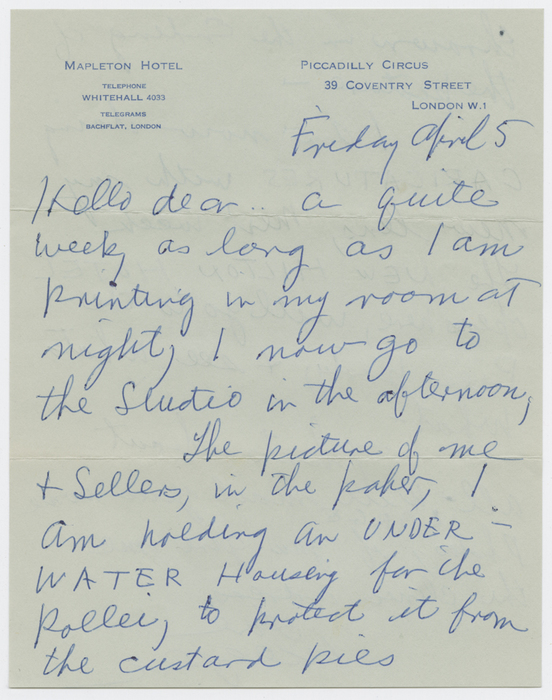 MAPLETON HOTEL
TELEPHONE
WHITEHALL 4033
TELEGRAMS
BACHFLAT, LONDON
PICCADILLY CIRCUS
39 COVENTRY STREET
LONDON W.1
Friday April 5
Hello dear .. a quite
week, as long as I am
printing in my room at
night, I now go to
the Studio in the afternoon,
The picture of me
+ Sellers, in the paper, I
am holding an UNDER -
WATER Housing for the
Rollei, to protect it from
the custard pies